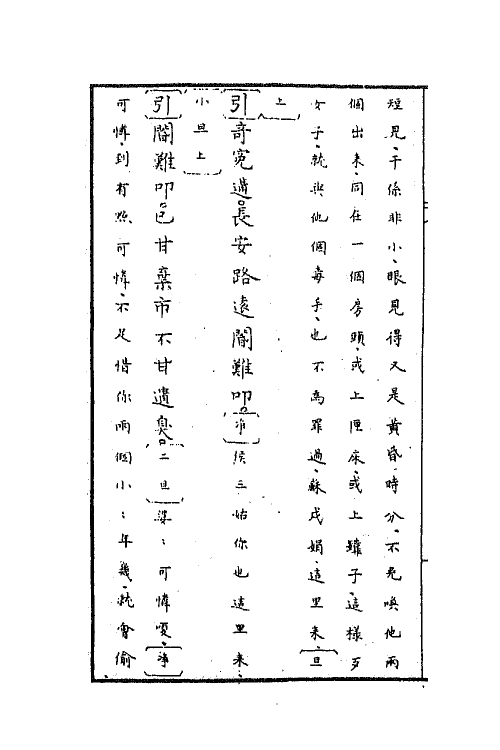 短見、干係非小、眼見得又是黃昏時分、不免喚他兩
個出来、同在一個房頭、或上匣床、或上鐐子、這樣歹
女子、就與他個毒手、也不為罪過、蘇戍娟、這里来、旦
上
引奇冤遘長安路遠閽難叩净侯三姑你也這里来、
小旦上
引閽難叩色甘棄市不甘遺臭二旦婆〻可憐嗄、净
可憐、到有㸃可憐、不足惜你兩個小〻年幾、就會偷